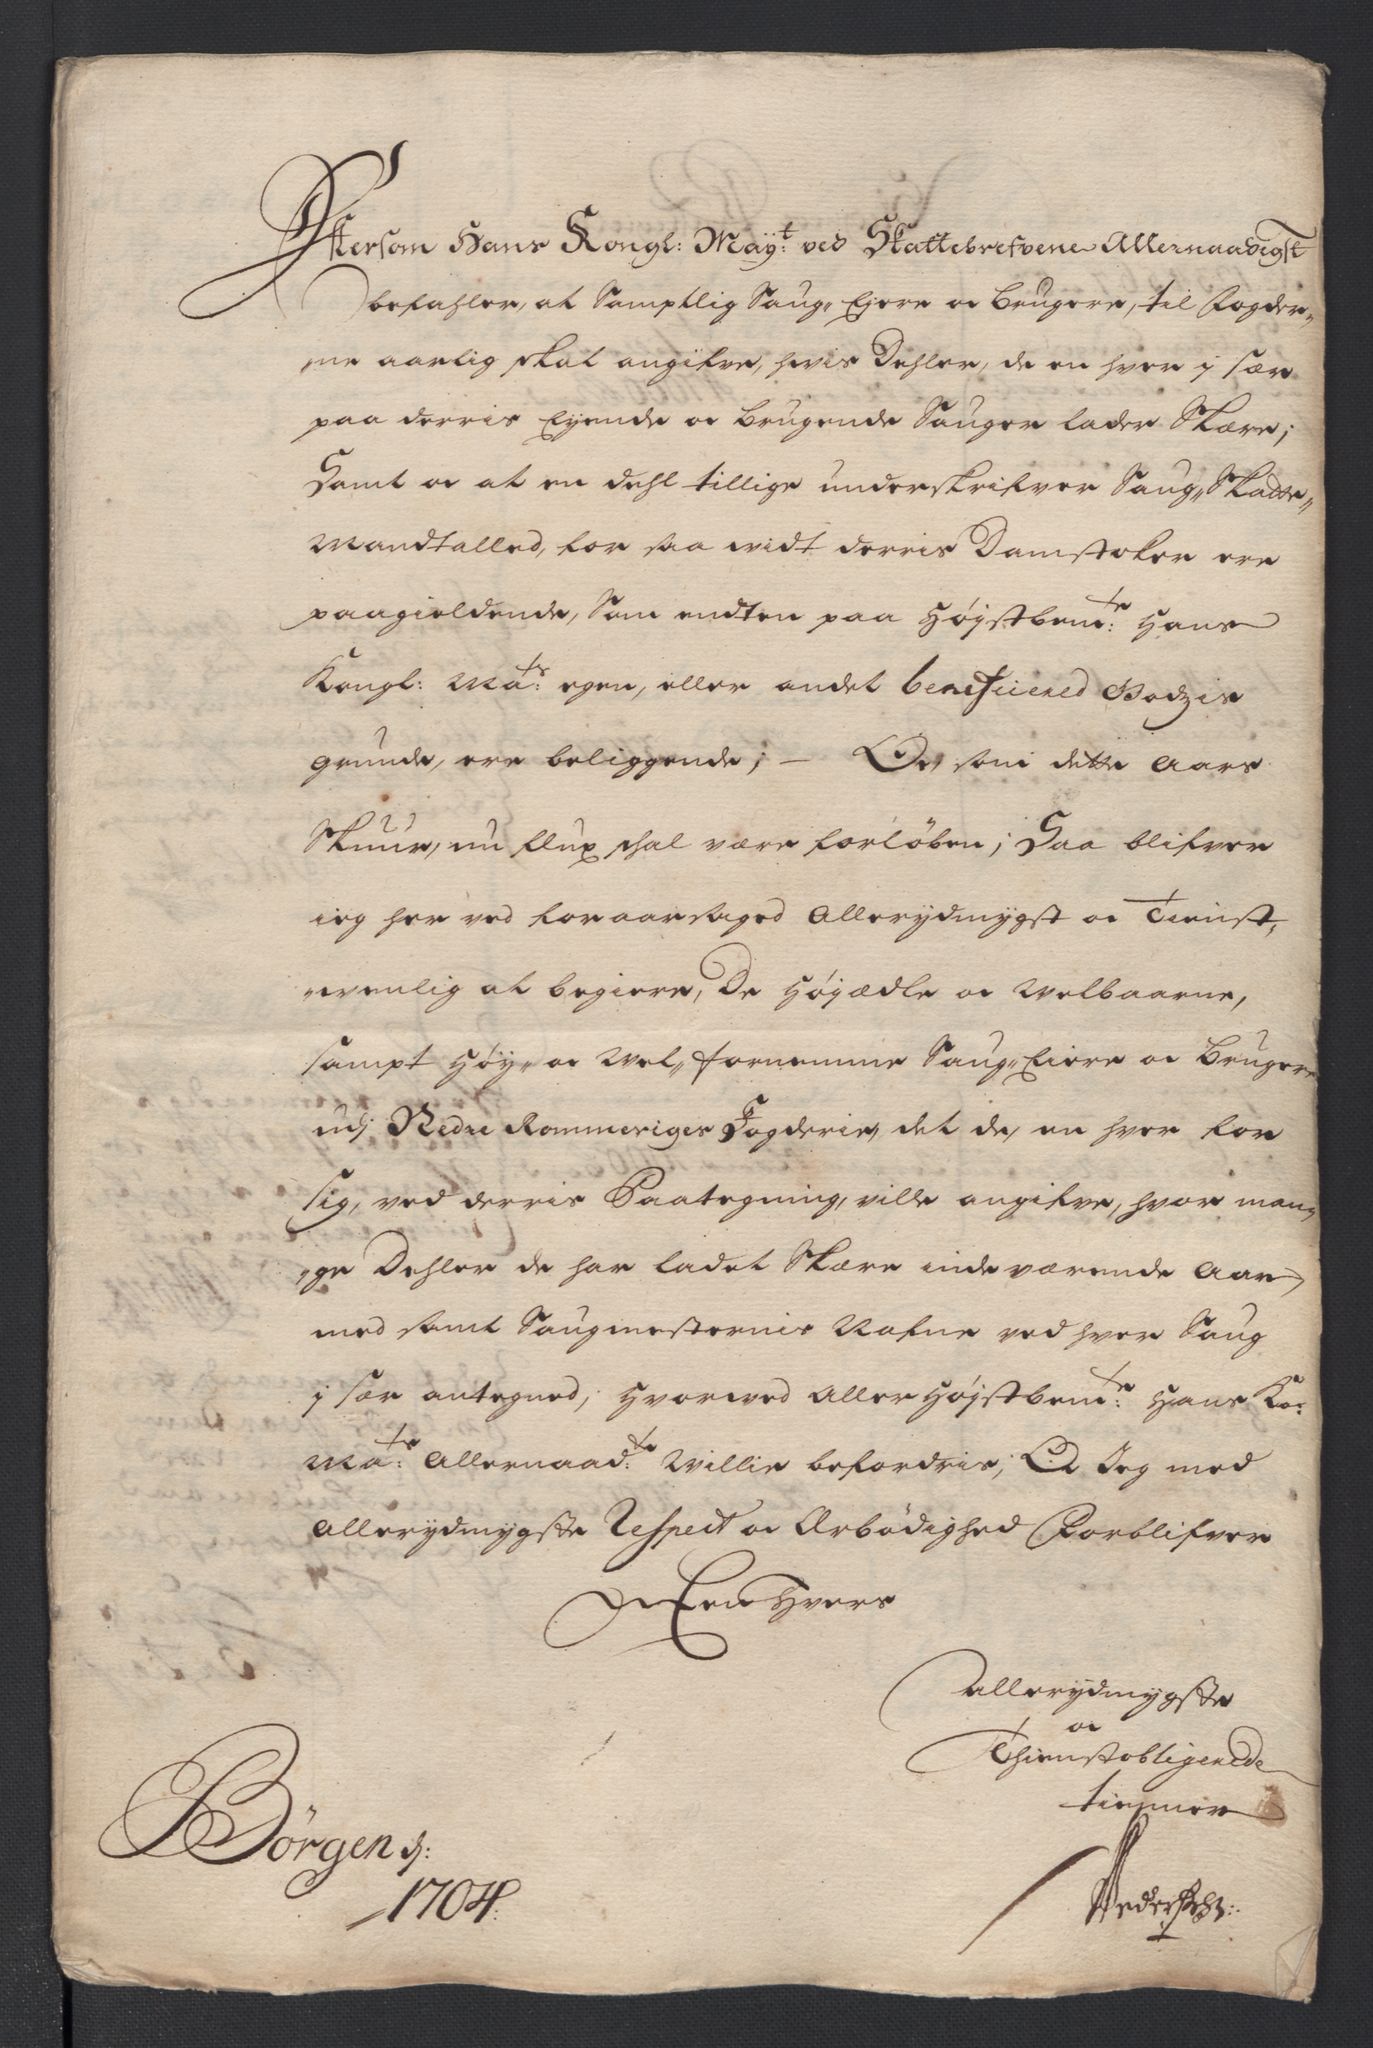 Eftersom Hans Kongl: Mayt: ved Skattebrefvene Allernaadigst
befahler, at Samptlig Saug„ Ejere oc Brugere, til Fogder„
„ne aarlig skal angifve, hvis Dehler, de en hver j sær
paa derris Eyende oc brugende Sauger lader Skære;
Samt oc at en dehl tillige underskrifver Saug„Skatte„
Mandtalled, for saa widt derris Damstoker ere
paagieldende, Som endten paa Højstbemte: Hans
Kongl: Mats: egen, eller andet beneficered Godzis
grunde, ere beliggende; – Oc som dette Aars
Skuur, nu flux schal være forløben; Saa blifver
ieg her ved foraarsaged Allerydmygst oc Tienst„
„wenlig at begiere, De Højædle oc Welbaarne,
sampt Høy„ oc Wel„ fornemme Saug„ Eiere oc Brugere
udj Nedre Rommeriges Fogderie, det de, en hver for
sig, ved derris Paategning, ville angifve, hvor man„
„ge Dehler de har ladet Skære indeværende Aar
med samt Saugmesternis Nafne ved hver Saug
j sær antegned; Hvorwed Aller Højstbemte: Hans Ko:
Mats: Allernaadte: Willie befordris; Oc Jeg med
Allerydmygste Respect oc Ærbödighed Forblifver
Een Hvers
Allerydmygste
oc
Thienstobligerede
tienner
Börgen d:
1704.